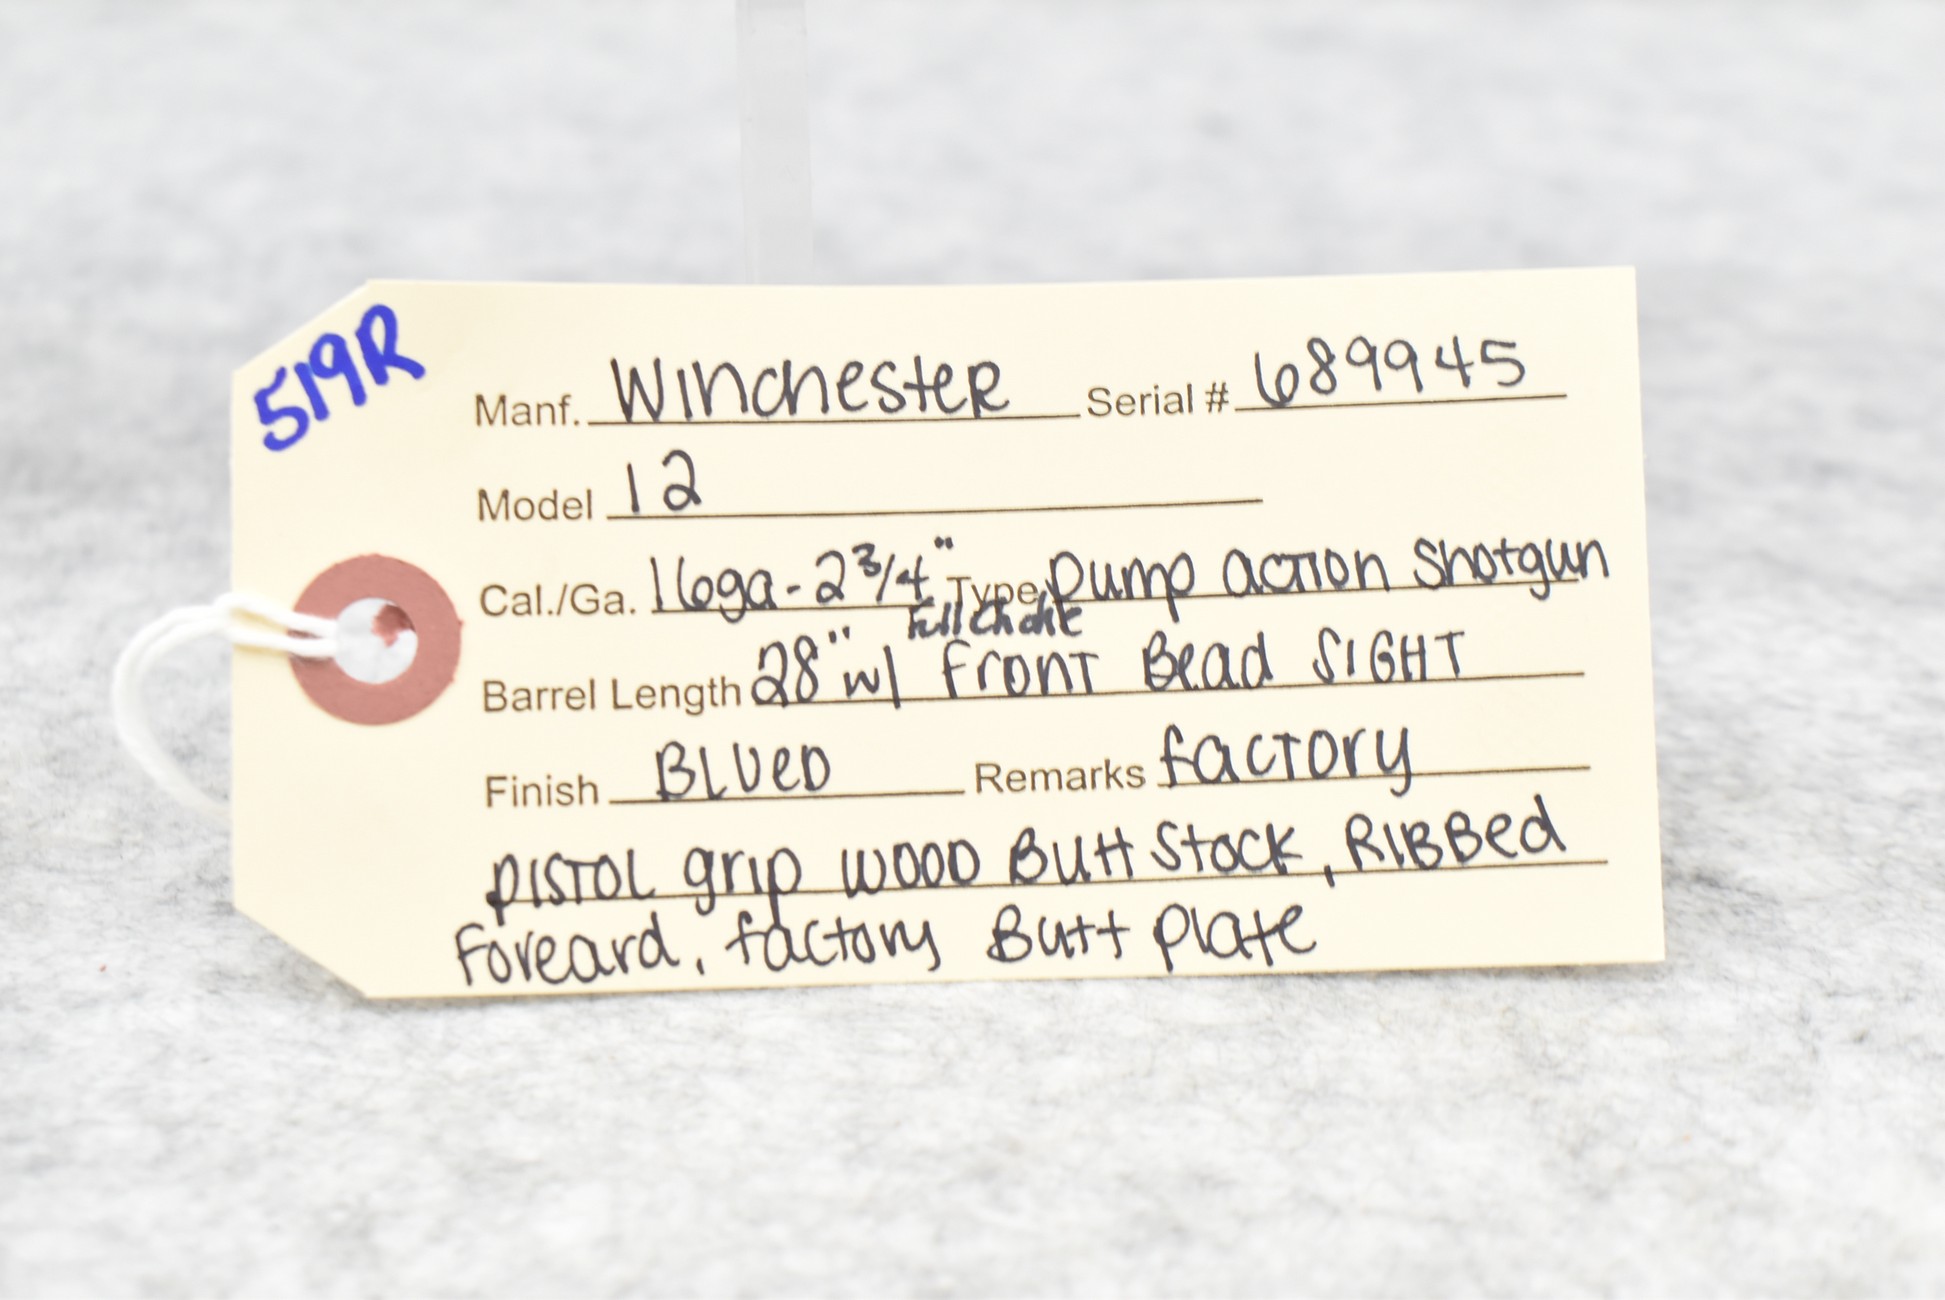 519R
Manf. Winchester Serial # 689945
Model 12
Cal./Ga. 16ga - 2 3/4" Type pump action shotgun
Full Choke
Barrel Length 28" w/ front Bead SIGHT
Finish BLUED Remarks factory
PISTOL grip WOOD Butt Stock, RIBBed
Foreard, factory Butt plate